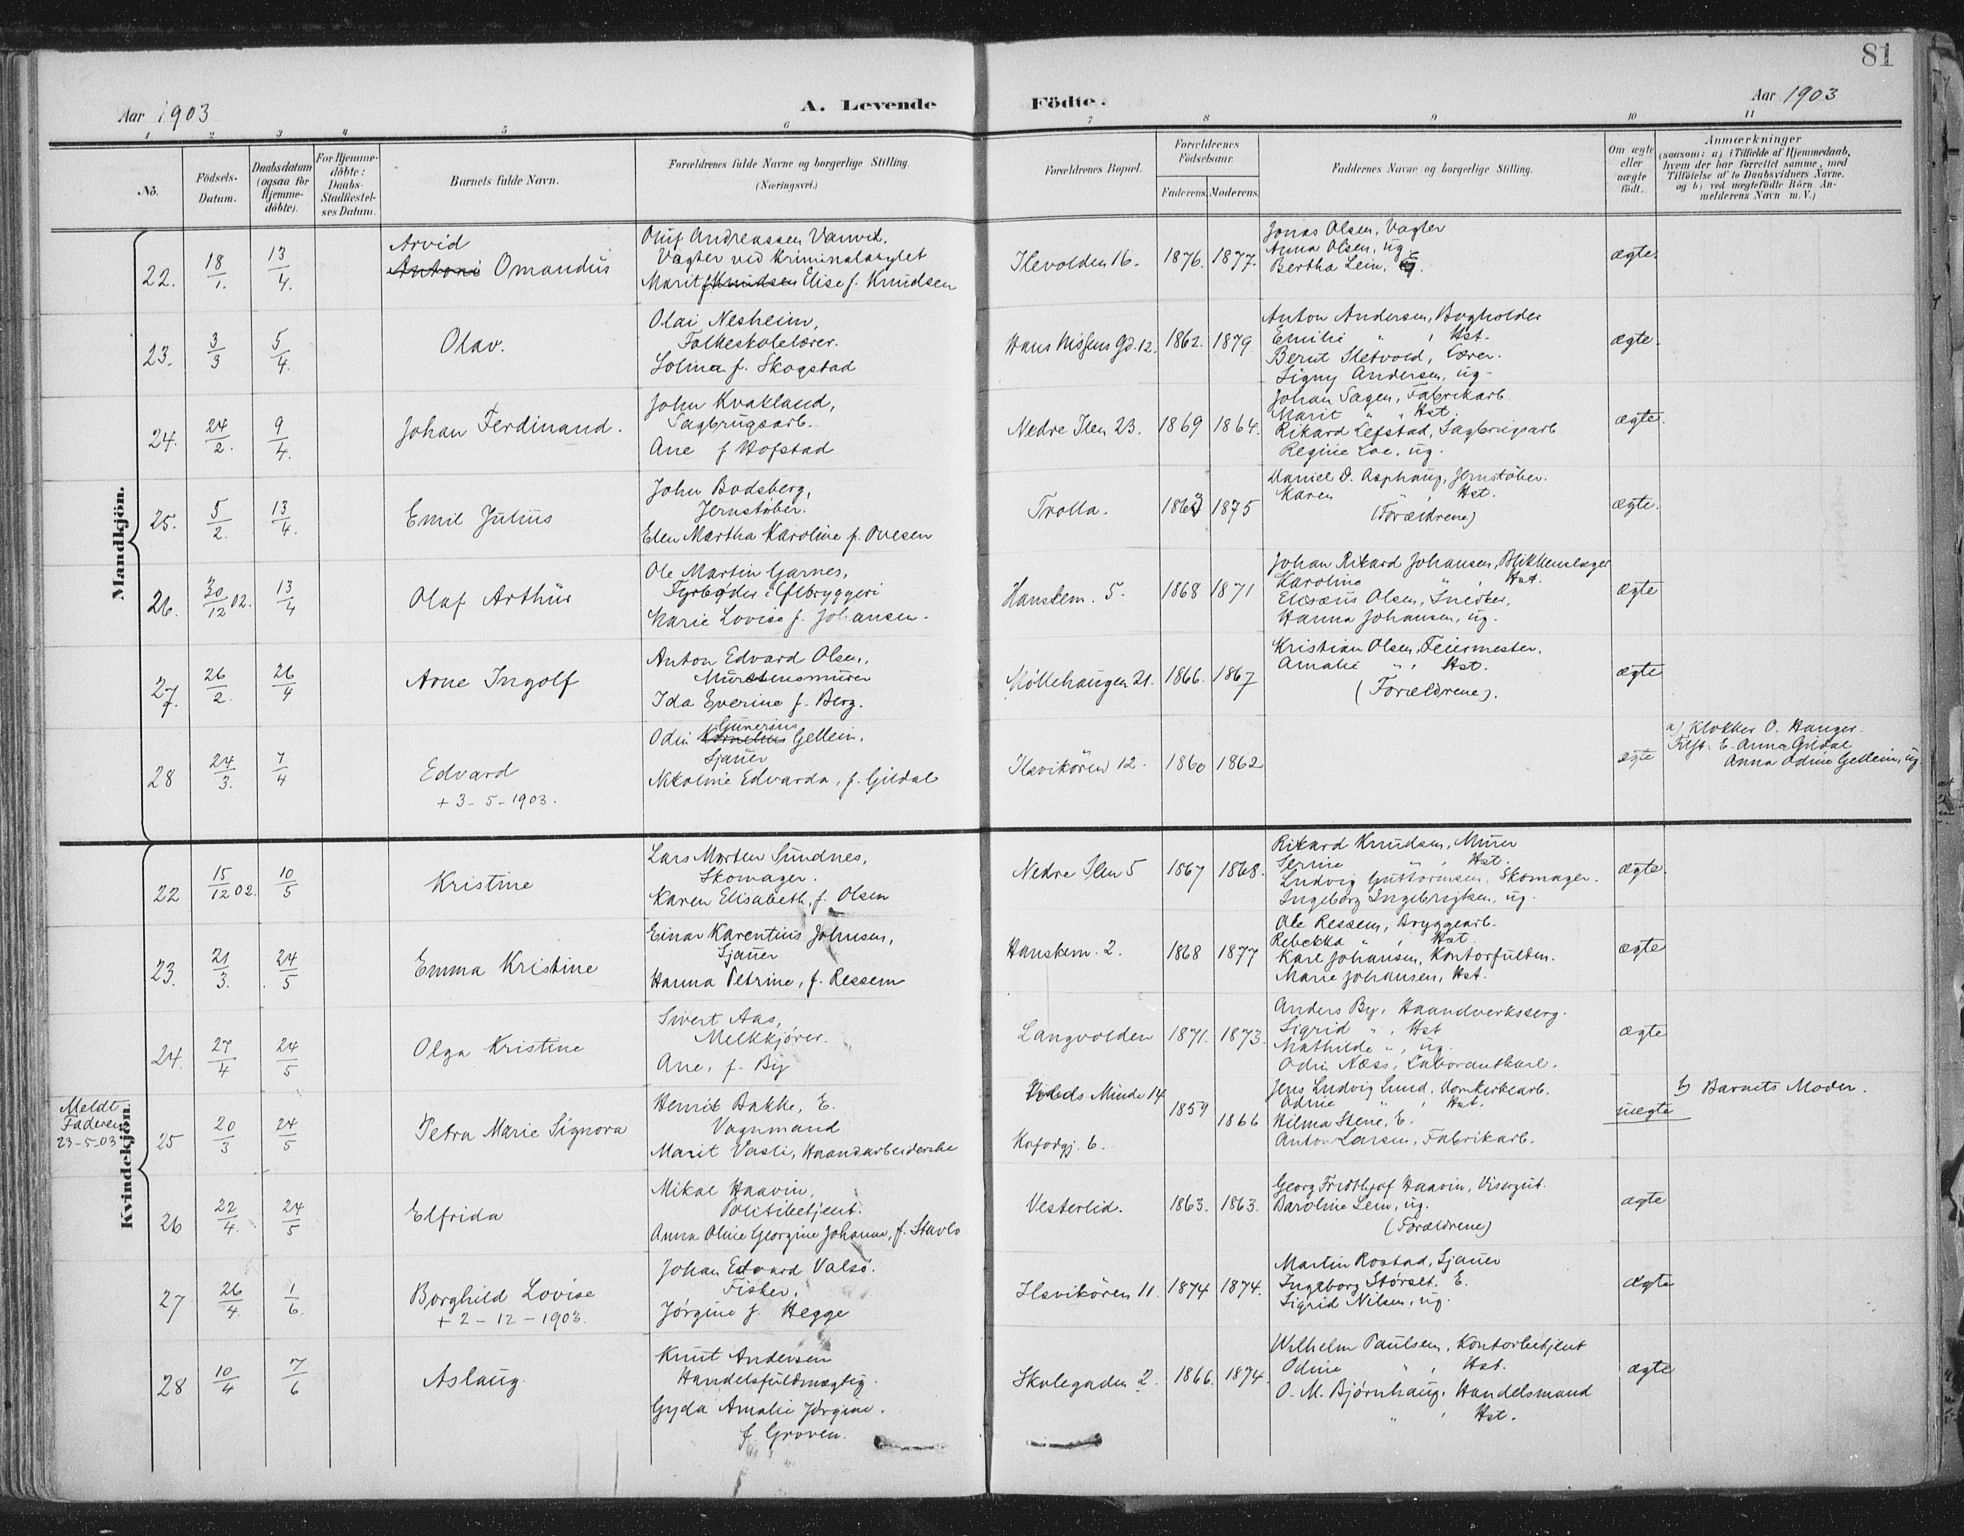 81
Aar 1903
A. Levende
Födte.
Aar 1903
1 2 3 4 5 6 7 8 9 10 11
No.
Födsels-Datum.
Daabsdatum (ogsaa for Hjemme-döbte).
For Hjemme-döbte: Daabs-Stadfæstel-ses Datum.
Barnets fulde Navn.
Forældrenes fulde Navne og borgerlige Stilling (Næringsvei.)
Forældrenes Bopæl.
Forældrenes Födselsaar.
Faderens. Moderens.
Faddernes Navne og borgerlige Stilling.
Om ægte eller uægte födt.
Anmærkninger
(saasom: a) i Tilfælde af Hjemmedaab, hvem der har forrettet samme, med Tilföielse af to Daabsvidners Navne. og b) ved uægtefödte Börn Anmelderens Navn m. V.)
Mandkjön.
22. 18/1. 13/4.
Arvid
Antoni Omandus
Oluf Andreassen Vanvik.
Vagter ved Kriminalasylet
Marit f. Knudsen Elise f. Knudsen
Ilevolden 16. 1876. 1877.
Jonas Olsen, Vagter
Anna Olsen, ug.
Bertha Lein, E.
ægte.
23. 3/3 5/4.
Olav.
Olai Nesheim,
Folkeskolelærer.
Solma f. Skogstad
Hans Nissens Gd. 12. 1862. 1879
Anton Andersen, Bogholder
Emilie " , Hst.
Bernt Sletvold, Lærer.
Signy Andersen, ug.
ægte.
24. 24/2. 9/4.
Johan Ferdinand.
John Kvakland,
Sagbrugsarb.
Ane f Hofstad
Nedre Ilen 23. 1869 1864.
Johan Sagen, Fabrikarb.
Marit " " Hst.
Rikard Lefstad, Sagbrugsarb
Regine Loe, ug.
ægte.
25. 5/2. 13/4.
Emil Julius
John Bodsberg,
Jernstøber.
Elen Martha Karoline f. Ovesen
Trolla. 1875
Daniel O. Asphaug, Jernstøber.
Karen " , Hst.
(Forældrene)
ægte.
26. 30/12 02. 13/4
Olaf Arthur
Ole Martin Garnes,
Fyrbøder i Ølbryggeri
Marie Lovise f. Johansen.
Hanskem. 5. 1868 1871
Johan Rikard Johansen, Blikkenslager
Karoline " , Hst.
Elesæus Olsen, Snedker,
Hanna Johansen, ug.
ægte
27. 26/2. 26/4
Arne Ingolf
Anton Edvard Olsen,
Murstensmurer
Ida Everine f. Berg.
Möllehaugen 21. 1866. 1867
Kristian Olsen, Feiermester,
Amalie " , Hst.
(Forældrene).
ægte
28 24/3. 7/4
Edvard
+ 3 - 5 - 1903.
Gunerius
Odin Kornelius Gellein.
Sjauer
Nikoline Edvarda, f. Gildal
Ilsvikören 12. 1860 1862
ægte
a) Klokker O. Hauger.
Tilst. E. Anna Gildal
Anna Odine Gellein, ug
Kvindekjön.
22 15/12 02. 10/5
Kristine
Lars Morten Sundnes,
Skomager.
Karen Elisabeth, f. Olsen
Nedre Ilen 5 1867 1868.
Rikard Knudsen, Murer
Serine " , Hst.
Ludvig Guttormsen, Skomager.
Ingeborg Ingebrigtsen, ug.
ægte.
23. 21/3. 24/5
Emma Kristine
Einar Karentius Johnsen,
Sjauer
Hanna Petrine, f. Ressem
Hanskem. 2. 1868 1877
Ole Ressem, Bryggearb.
Rebekka " , Hst.
Karl Johansen, Kontorfuldm.
Marie Johansen, Hst.
ægte
24. 27/4 24/5
Olga Kristine
Sivert Aas,
Melkkjører.
Ane, f. By
Langvolden 1871. 1873.
Anders By, Haandverksberg.
Sigrid " , Hst
Mathilde " , ug.
Odin Næss, Laborantkarl.
ægte
Meldt
Faderen
23-5-03
25 20/3 24/5
Petra Marie Signora
Henrik Bakke, E.
Vognmand
Marit Vasli, Haandarbeiderske
Minde 14
Kofodgj. 6. 1859 1866
Jens Ludvig Lund, Domkirkearb.
Odine " , Hst.
Hilma Stene, E.
Anton Larsen, Fabrikarb.
uægte
b) Barnets Moder.
26 22/4. 24/5
Elfrida
Mikal Haavin,
Politibetjent.
Anna Oline Georgine Johanne, f. Stavlo
Vesterlid. 1863. 1863.
Georg Fridthjof Haavin, Visergut.
Baroline Lein, ug.
(Forældrene)
ægte
27 26/4. 1/6.
Borghild Lovise
+ 2 - 12 - 1903.
Johan Edvard Valsø.
Fisker.
Jørgine f. Hegge
Ilsvikören 11 1874 1874.
Martin Rostad, Sjauer
Ingeborg Størset. E.
Sigrid Nilsen, ug.
ægte
28 10/4 7/6
Aslaug.
Knut Andersen
Handelsfuldmægtig.
Gyda Amalie Jørgine.
f. Groven.
Skolegaden 2. 1866. 1874.
Wilhelm Paulsen, Kontorbetjent
Odine " , Hst.
O. M. Bjørnhaug, Handelsmand
" , Hst.
ægte